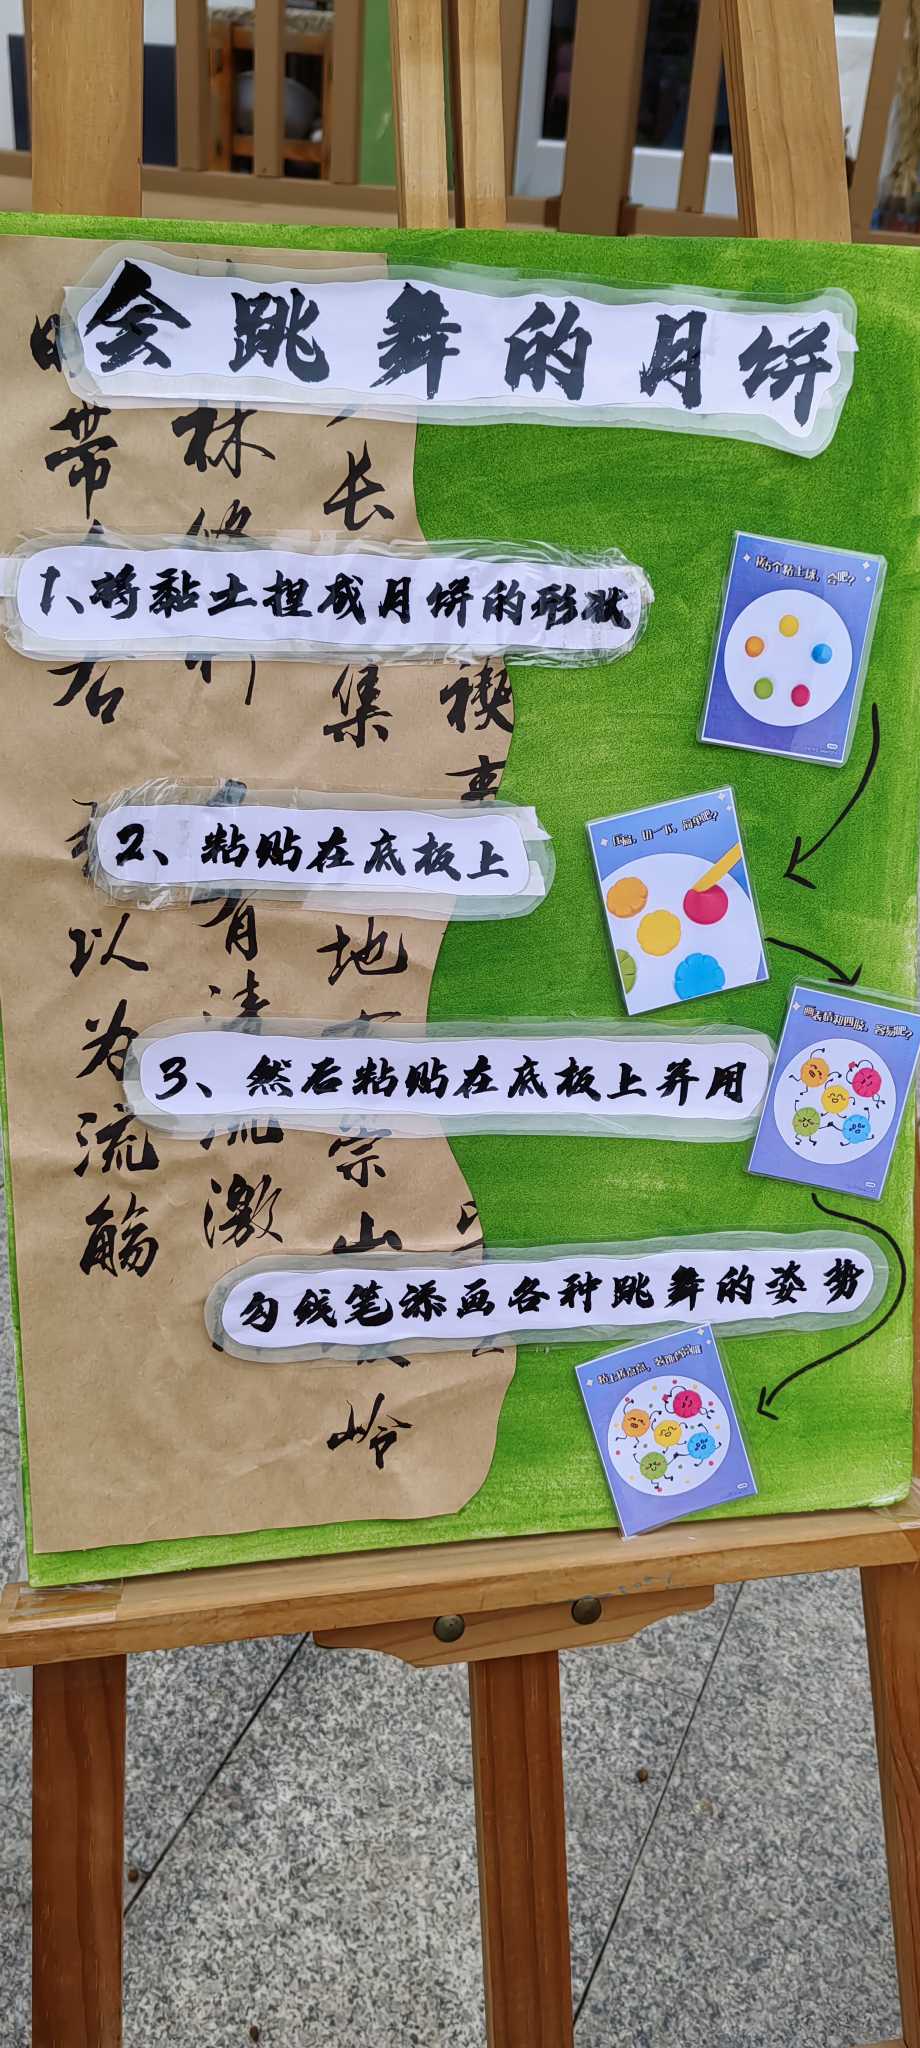 会跳舞的月饼
1、将黏土捏成月饼的形状
2、粘贴在底板上
3、然后粘贴在底板上并用
勾线笔添画各种跳舞的姿势
搓5个粘土球，会吧？
压扁，切一下，简单吧？
画表情和四肢，容易吧？
长
集
地
崇
山
岭
禊
事
林
修
有
清
流
激
带
右
以
为
流
觞